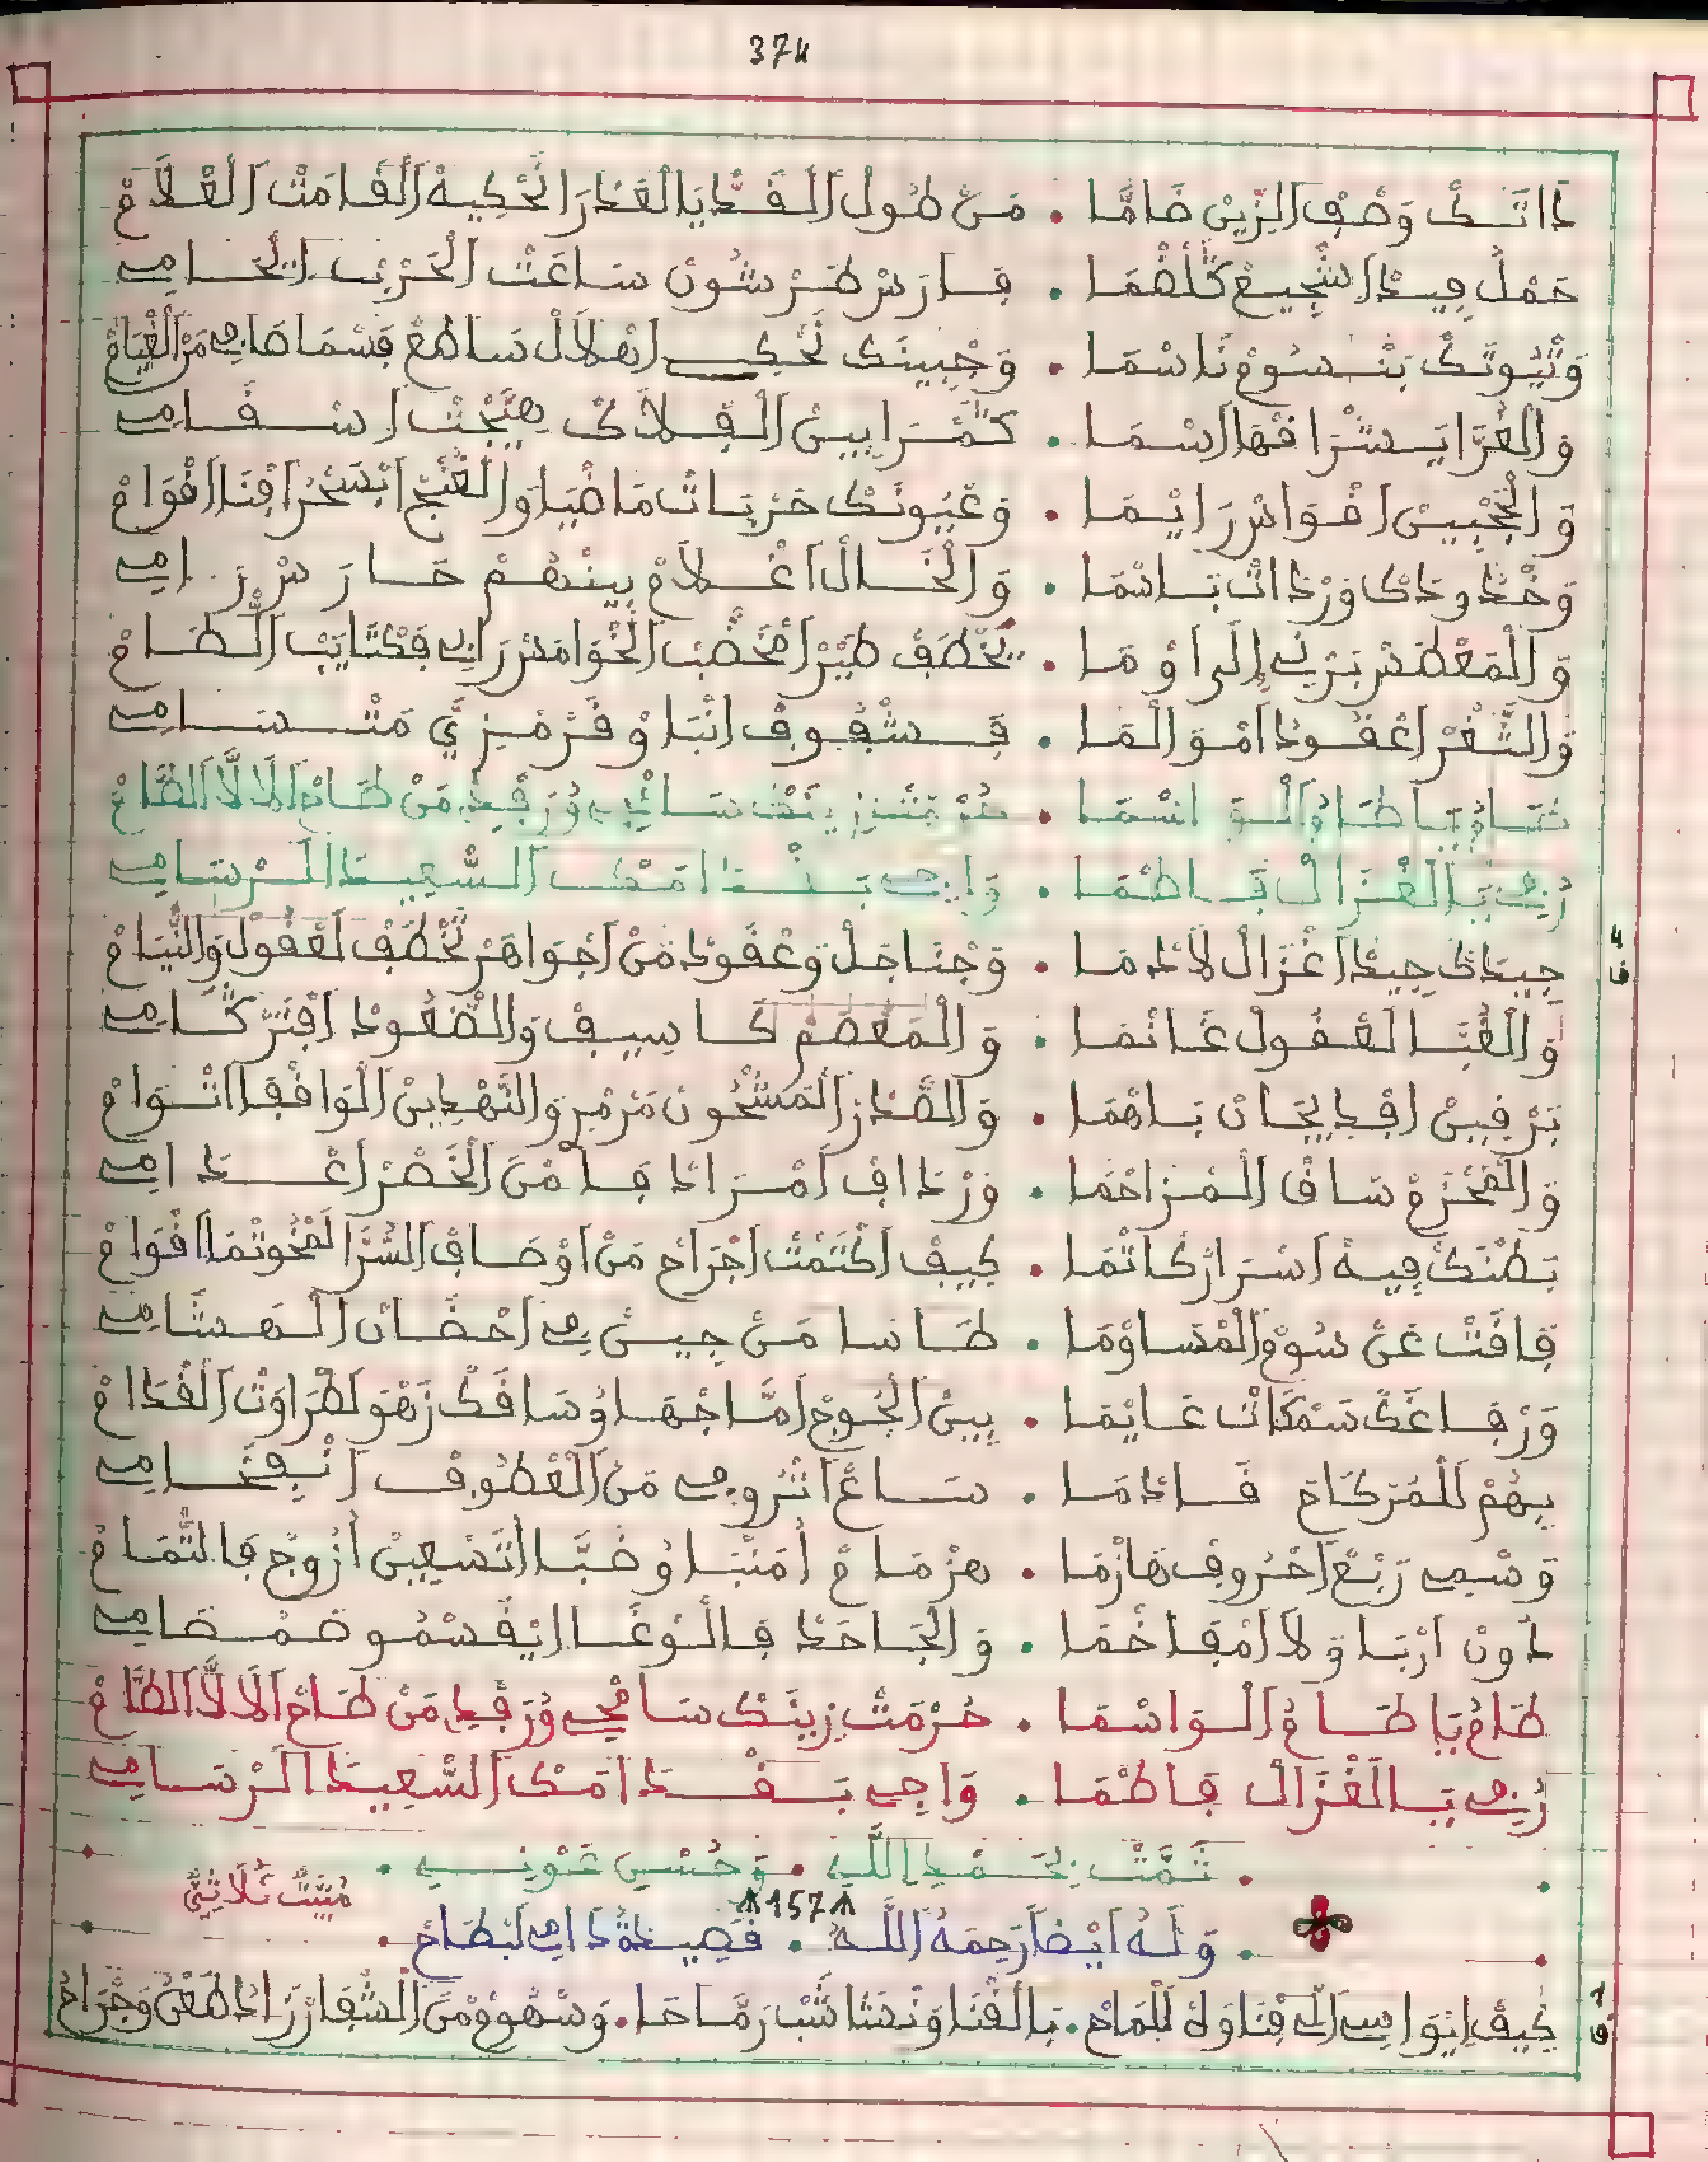 374
ذَاتَـكْ وَصْفْ الزِّينْ ضَامَّا . مَنْ طُولْ اَلْـقَـدّْ يَا الْعَدْرَا تَحْكِيهْ اَلْقَامَتْ اَلْعْلَامْ
حَمْلُ فِيـدْ اشْجِيعْ كَلْضْمَا . فَارَسْ طَرْشُونْ سَاعَتْ اَلْحَرْبْ ايْحَـامِي
وَتْيُوتَكْ بَنْسُومْ نَاسْمَا . وَجْبِينَكْ تَحْكِي اهْلَالْ سَاطَعْ فَسْمَا صَامِي مَنْ اَلْغْيَامْ
وَالْغُرَّا يَـشْرَا فْهَا اَسْمَا . كَثْرَيَا بِينْ اَلْفْلَاكْ هِيّْجَتْ اسْقَـامِي
وَالْحَجْبِينْ اقْوَاسْ رَايْمَا . وَعْيُونَكْ حَرْبَاتْ مَاضْيَا وَالْغَنْجْ ابْسَحْرْ افْنَا اقْوَامْ
وَخْدُودَكْ وَرْدَاتْ بَاسْمَا . وَالْخَالْ اغْلَامْ بِينْهُمْ حَارَسْ رَامِي
وَالْمَعْطَسْ بَرْنِي إِلَى اوْمَا . يَخْطَفْ طَيْرْ امْخَضَّبْ الْخْوَامَسْ رَابِي فَكْتَايَبْ الطَّامْ
وَالثَّغْرْ اعْقُودْ امْوَالْمَا . فَـشْفُوفْ انْبَاوْ قَرْمْزِيَّ مَتْسَـامِي
طَامُ يَا طَامُ اَلْوَاسْمَا . حُرْمَتْ زِينَكْ سَامْحِي وُرَفْدِي مَنْ طَامْ اَلَالَّا اَلطَّامْ
رُفِي يَا الْغْزَالْ فَاطْمَا . وَاجِي بَـفْـدَامَكْ السّْعِيدَا الْرْسَامِي
جِيدَكْ جِيدْ اغْزَالْ لَادْمَا . وَجْنَاجَلْ وَعْقُودْ مَنْ اجْوَاهَرْ تَخْطَفْ لَعْقُولْ وَالنّْيَامْ
وَالْغُبَّا لَعْقُولْ غَانْمَا . وَالْمَعْصَمْ كَاسِيفْ وَالضّْعُودْ افْتَرْكَـامِي
بَرْفِيينْ افْدِيجَانْ بَاهْمَا . وَالصّْدَرْ الْمَشْحُونْ مَرْمْرْ وَالنَّهْدِينْ الْوَاقْفَا اتْوَامْ
وَالْمَحْزَمْ سَاقْ الْمْزَاحْمَا . وَرْدَافْ اَمْرَادْفَا مْنَ الْخَصْرْ اعْدَامِي
بَطْنَكْ فِيهْ اسْرَارْ كَاتْمَا . كِيفْ اكْتَمْتْ اجْرَاحْ مَنْ اوْصَافْ السُّرَّا لَمْخُوتْمَا افْوَامْ
فَاقَتْ عَنْ سُومْ الْمْسَاوْمَا . طَاسَا مَنْ جِينْ فِي احْضَانْ الْهَشَامِي
وَرْفَاغَكْ سَمْكَاتْ عَايْمَا . بِينْ الْجُوجْ امَّاجْهَا وُسَاقَكْ زَهْوَ لَطْرَاوَتْ الْقْدَامْ
بِهُمْ لَلْمَرْكَاحْ قَـادْمَا . سَاعْ اتْرُوفِي مَنْ الْعْطُوفْ انْفَخَّـامِي
وَسْمِي رَبْعْ احْرُوفْ هَازْمَا . هَزْمَامْ امَنْبَاوْ ضَبَّا اتَّسْعِينْ ازْوجْ فَالتّْمَامْ
دُونْ ارْبَا وَلَا امْفَاخْمَا . وَالْجَاحَدْ فَالْوْغَا ايْقَسْمُو صَمْصَامِي
طَامُ يَا طَامُ اَلْوَاسْمَا . حُرْمَتْ زِينَكْ سَامْحِي وُرَفْدِي مَنْ طَامْ اَلَالَّا اَلطَّامْ
رُفِي يَـا الْغْزَالْ فَاطْمَا . وَاجِي بَـفْـدَامَكْ السّْعِيدَا الْرْسَـامِي
. تَمَّتْ بِحَمْدِ اللَّهِ . وَحُسْنِ عَوْنِهِ .
مُبَيَّتْ ثُلَاثِيّْ
157
. وَلَهُ أَيْضاً رَحِمَهُ اللَّهُ . قَصِيدَةُ دَامِي لَبْطَاحْ .
كِيفْ ايْوَاسِي اَلِّي فْنَاوَكْ لَلْمَاحْ . بَالْفْنَا وَنْسَا شَبْ رَمَّاحَا . وَسْهُومْ مْنَ الشّْفَارْ رَادْ طَعْنْ وَجْرَاحْ